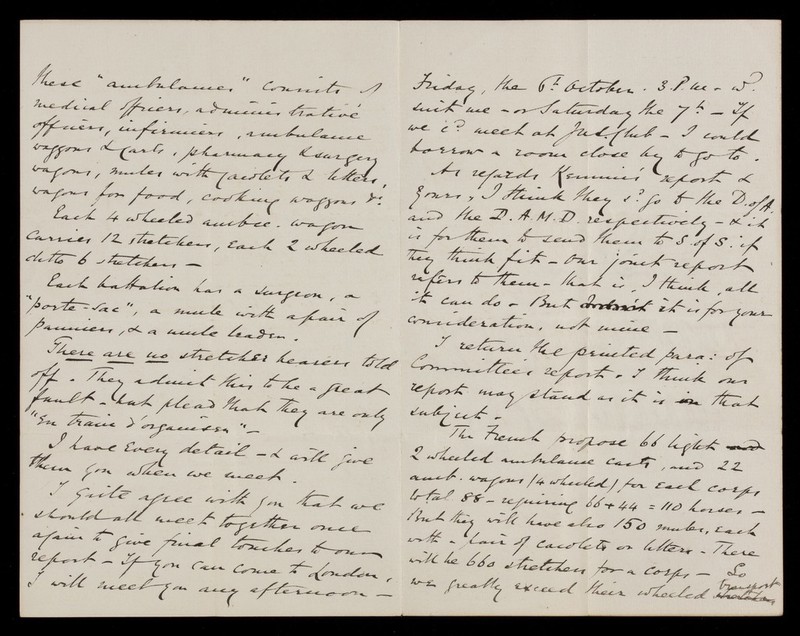 these "ambulances" consists of
medical officers, administrative
officers, infirmiers, ambulance
waggons & carts, pharmacy & surgery
wagons, mules with cacolets & litters,
wagons for food, cooking waggons &c.
Each 4 wheeled ambce. wagon
carries 12 stretchers, each 2 wheeled
ditto 6 stretchers —
Each battalion has a surgeon, a
"porte-sac", a mule with a pair of
panniers, & a mule leader.
There are no stretcher bearers told
off. They admit this to be a great
fault - but plead that they are only
"en train d'organiser" —
I have every detail — & will give
them you when we meet.
I quite agree with you that we
should all meet together once
again to give final touches to our
report — If you can come to London,
I will meet you any afternoon —
Friday, the 6th October. 3. P.M. - wd.
suit me — or Saturday the 7th — If
we cd. meet at Club — I could
borrow a room close by to go to.
As regards Kemmis' report &
yours, I think they sd. go to the D. of A.
and the D. A. M. D. respectively — & it
is for them to send them to S. of S. if
they think fit — Our joint report
refers to them — that is, I think, all
it can do — But it is for your
consideration, not mine —
I return the printed para: of
Committees report. I think our
report may stand as it is on that
subject.
The French propose 66 light
2 wheeled ambulance carts, and 22
amb. wagons (4 wheeled) for each corps
total 88 — requiring 66 + 44 = 110 horses —
But they will have also 150 mules, each
with a pair of cacolets or litters — There
will be 660 stretchers for a corps — So
we greatly exceed their wheeled transport